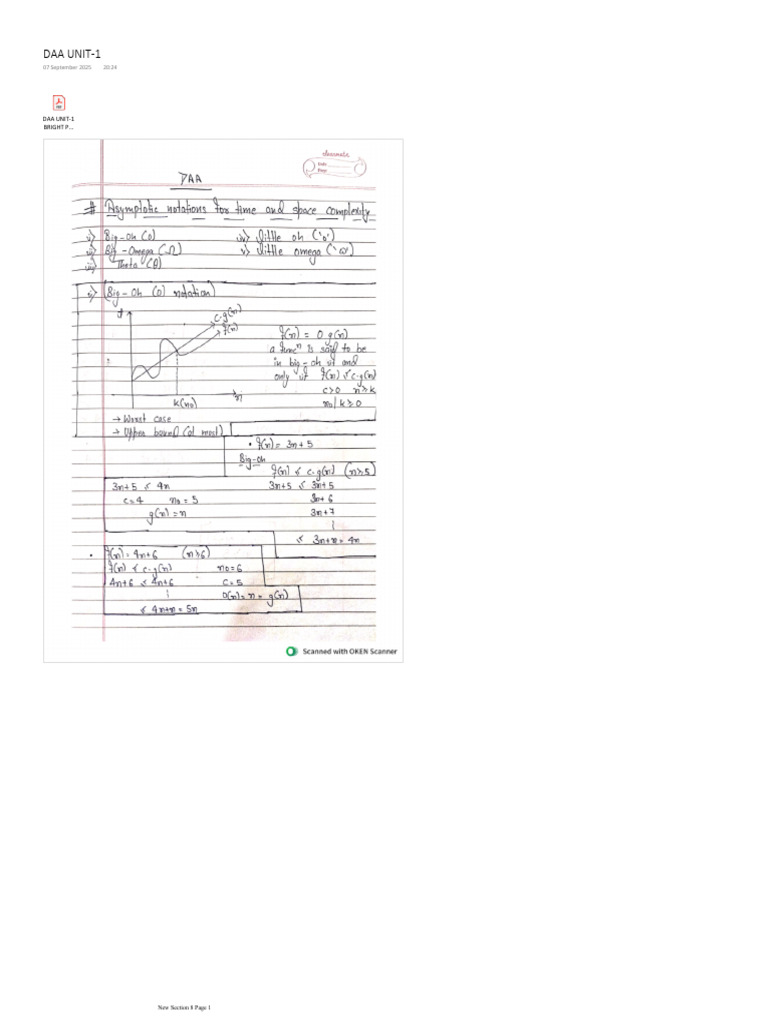 DAA UNIT-1
07 September 2025 20:24
DAA UNIT-1
BRIGHT P...
classmate
Date
Page
DAA
# Asymptotic notations for time and space complexity
i) Big-Oh (O) iv) little oh ('o')
ii) Big-Omega (Ω) v) little omega ('ω')
iii) Theta (θ)
i) (Big-Oh (O) notation)
c.g(n)
f(n)
f(n) = O g(n)
a funcⁿ is said to be
in big-oh if and
only if f(n) ≤ c.g(n)
c>0 n≥k
n₀/k≥0
k(n₀) n
→ Worst case
→ Upper bound (at most)
• f(n) = 3n+5
Big-Oh
f(n) ≤ c.g(n) (n≥5)
3n+5 ≤ 4n 3n+5 ≤ 3n+5
c=4 n₀=5 3n+6
g(n)=n 3n+7
≤ 3n+n = 4n
• f(n) = 4n+6 (n≥6)
f(n) ≤ c.g(n) n₀=6
4n+6 ≤ 4n+6 c=5
O(n)=n = g(n)
≤ 4n+n = 5n
Scanned with OKEN Scanner
New Section 8 Page 1